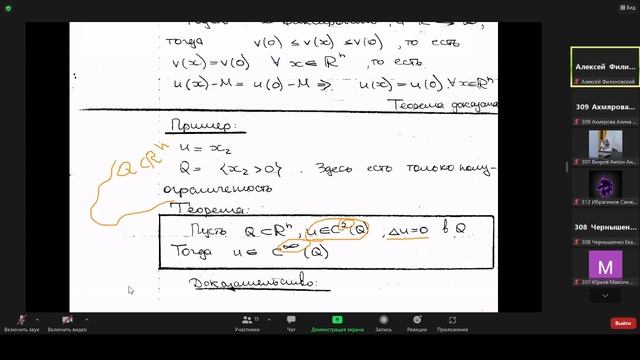 Вид
тогда v(0) ≤ v(x) ≤ v(0), то есть
v(x) = v(0) ∀ x ∈ ℝⁿ, то есть
u(x) - M = u(0) - M ⇒ u(x) = u(0) ∀ x ∈ ℝⁿ
Теорема доказана
Пример:
u = x₂
Q = {x₂ > 0}. Здесь есть только полу-
ограниченность
Q ⊂ ℝⁿ
Теорема:
Пусть Q ⊂ ℝⁿ, u ∈ C²(Q), Δu = 0 в Q
Тогда u ∈ C^∞(Q)
Доказательство:
Алексей Фили...
Алексей Филиновский
309 Ахмярова...
309 Ахмярова Алина ...
307 Вихров Антон Ан...
312 Ибрагимов Санж...
308 Чернышен...
308 Чернышенко Ека...
M
307 Юрьев Максим ...
Включить звук
Включить видео
Участники
15
Чат
Демонстрация экрана
Запись
Реакции
Приложения
Выйти